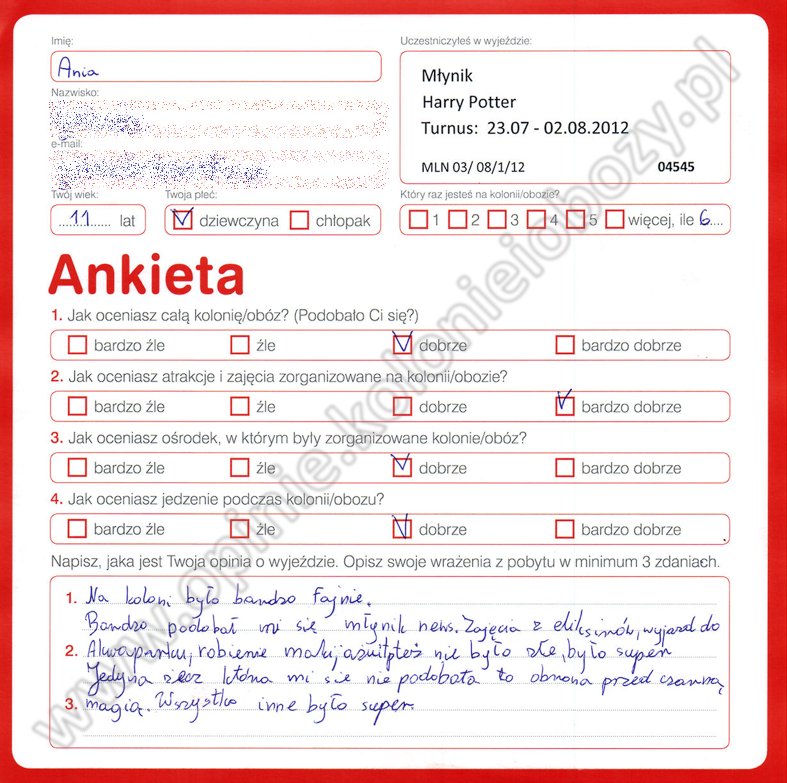 Imię:
Ania
Nazwisko:
e-mail:
Twój wiek:
11 lat
Twoja płeć:
dziewczyna chłopak
Uczestniczyłeś w wyjeździe:
Młynik
Harry Potter
Turnus: 23.07 - 02.08.2012
MLN 03/ 08/1/12 04545
Który raz jesteś na kolonii/obozie?
1 2 3 4 5 więcej, ile 6....
Ankieta
1. Jak oceniasz całą kolonię/obóz? (Podobało Ci się?)
bardzo źle źle dobrze bardzo dobrze
2. Jak oceniasz atrakcje i zajęcia zorganizowane na kolonii/obozie?
bardzo źle źle dobrze bardzo dobrze
3. Jak oceniasz ośrodek, w którym były zorganizowane kolonie/obóz?
bardzo źle źle dobrze bardzo dobrze
4. Jak oceniasz jedzenie podczas kolonii/obozu?
bardzo źle źle dobrze bardzo dobrze
Napisz, jaka jest Twoja opinia o wyjeździe. Opisz swoje wrażenia z pobytu w minimum 3 zdaniach.
1. Na koloni było bardzo fajnie.
Bardzo podobał mi się młynik news. Zajęcia z eliksirów, wyjazd do
2. Akwaparku, robienie nie było złe, było super
Jedyna rzecz która mi sie nie podobała to obrona przed czarną
3. magią. Wszystko inne było super.
www.opinie.kolonieiobozy.pl